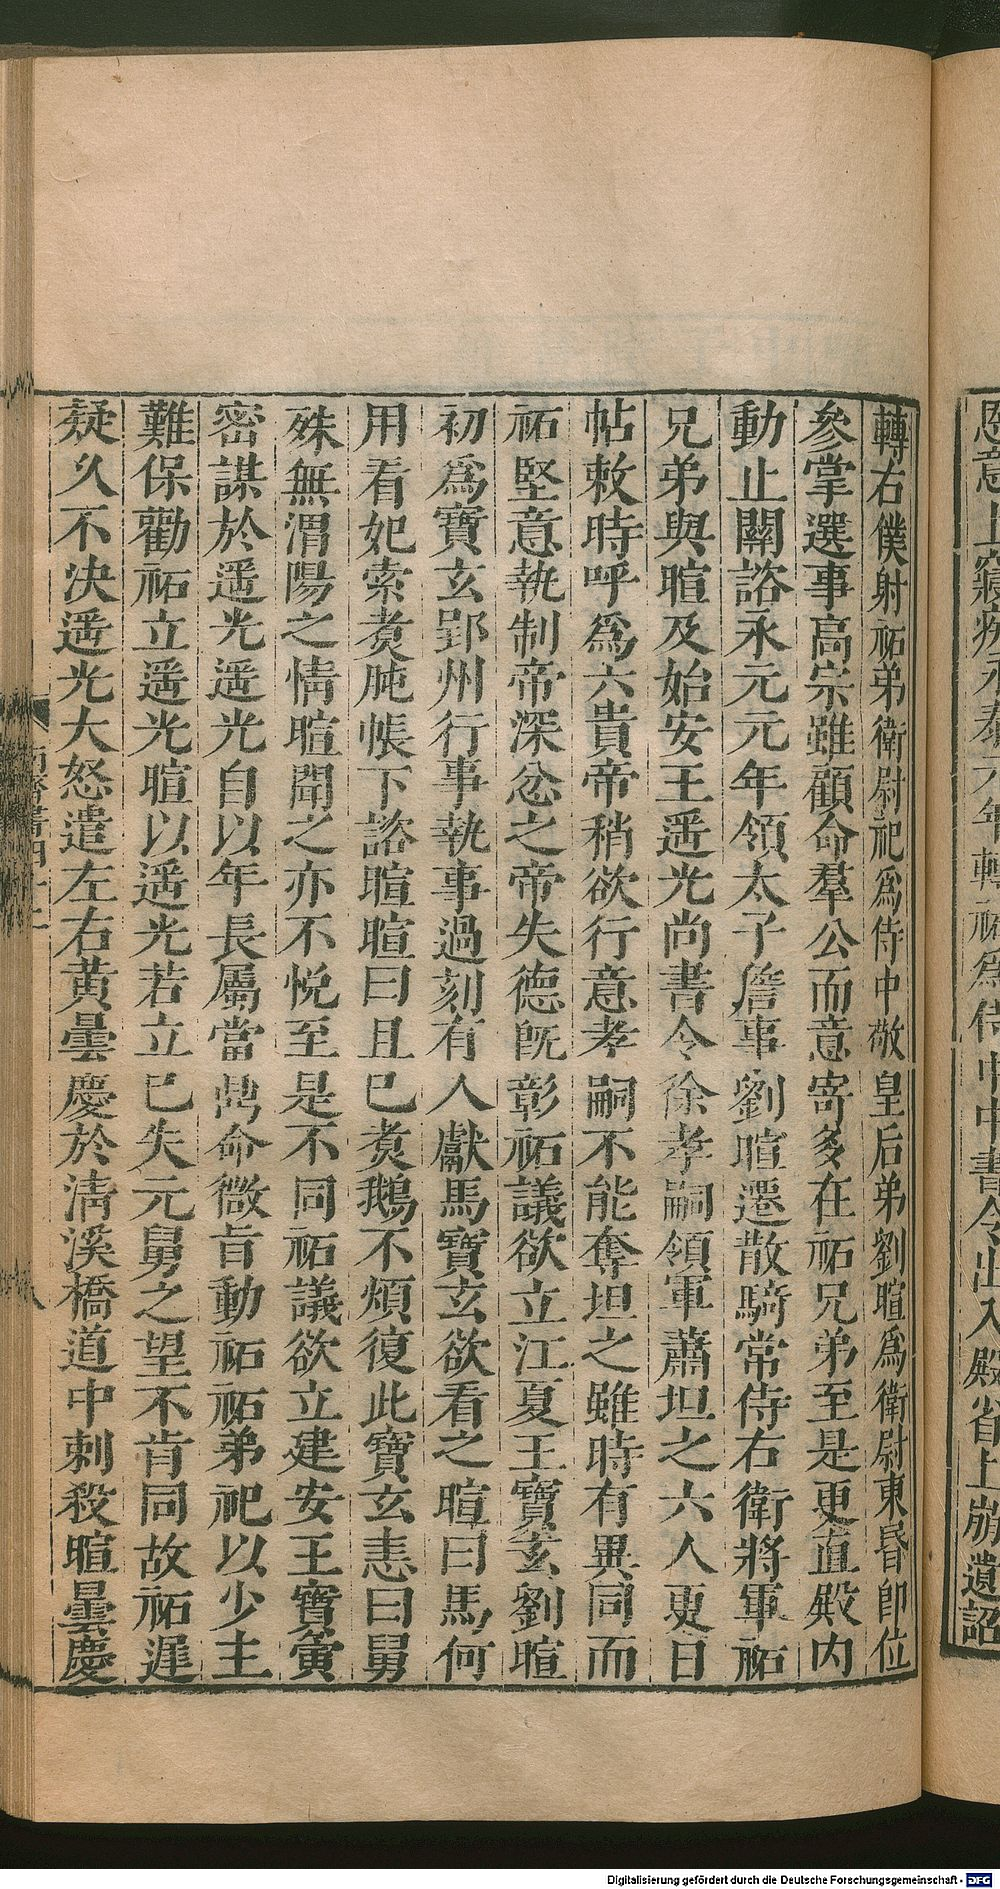 恩意上寢疾永泰元年轉祏爲侍中中書令出入殿省上崩遺詔
轉右僕射祏弟衛尉祀爲侍中敬皇后弟劉暄爲衛尉東昏即位
參掌選事高宗雖顧命羣公而意寄多在祏兄弟至是更直殿内
動止關諮永元元年領太子詹事劉暄遷散騎常侍右衛將軍祏
兄弟與暄及始安王遥光尚書令徐孝嗣領軍蕭坦之六人更日
帖敕時呼爲六貴帝稍欲行意孝嗣不能奪坦之雖時有異同而
祏堅意執制帝深忿之帝失德既彰祏議欲立江夏王寶玄劉暄
初爲寶玄郢州行事執事過刻有人獻馬寶玄欲看之暄曰馬何
用看妃索煑肫帳下諮暄暄曰旦已煑鵝不煩復此寶玄恚曰舅
殊無渭陽之情暄聞之亦不悦至是不同祏議欲立建安王寶夤
密謀於遥光遥光自以年長屬當鼎命微旨動祏祏弟祀以少主
難保勸祏立遥光暄以遥光若立己失元舅之望不肯同故祏遲
疑久不决遥光大怒遣左右黄曇慶於淸溪橋道中刺殺暄曇慶
南齊書四十二
八
Digitalisierung gefördert durch die Deutsche Forschungsgemeinschaft - DFG